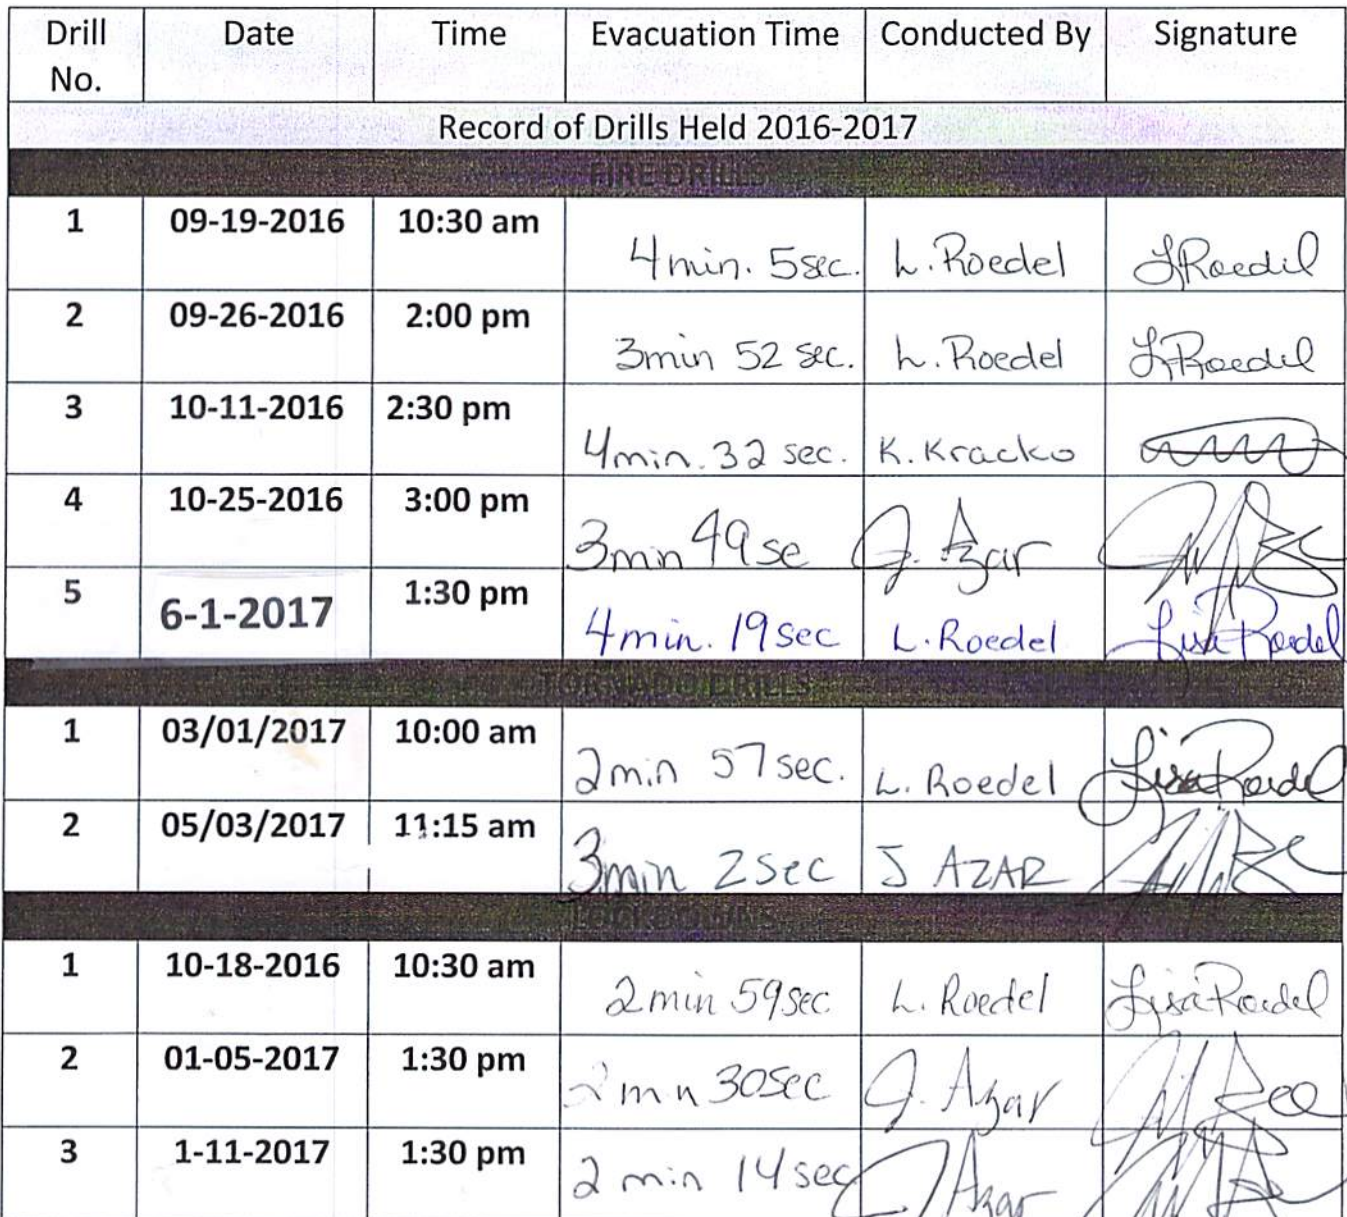 Drill No. Date Time Evacuation Time Conducted By Signature
Record of Drills Held 2016-2017
FIRE DRILLS
1 09-19-2016 10:30 am 4 min. 5 sec. L. Roedel LRoedel
2 09-26-2016 2:00 pm 3min 52 sec. L. Roedel LRoedel
3 10-11-2016 2:30 pm 4min. 32 sec. K. Kracko
4 10-25-2016 3:00 pm 3min 49 se J. Azar
5 6-1-2017 1:30 pm 4min. 19 sec L. Roedel Lisa Roedel
TORNADO DRILLS
1 03/01/2017 10:00 am 2min 57 sec. L. Roedel Lisa Roedel
2 05/03/2017 11:15 am 3min 2 sec J AZAR
LOCKDOWNS
1 10-18-2016 10:30 am 2 min 59 sec L. Roedel Lisa Roedel
2 01-05-2017 1:30 pm 2 min 30 sec J. Azar
3 1-11-2017 1:30 pm 2 min 14 sec J Azar